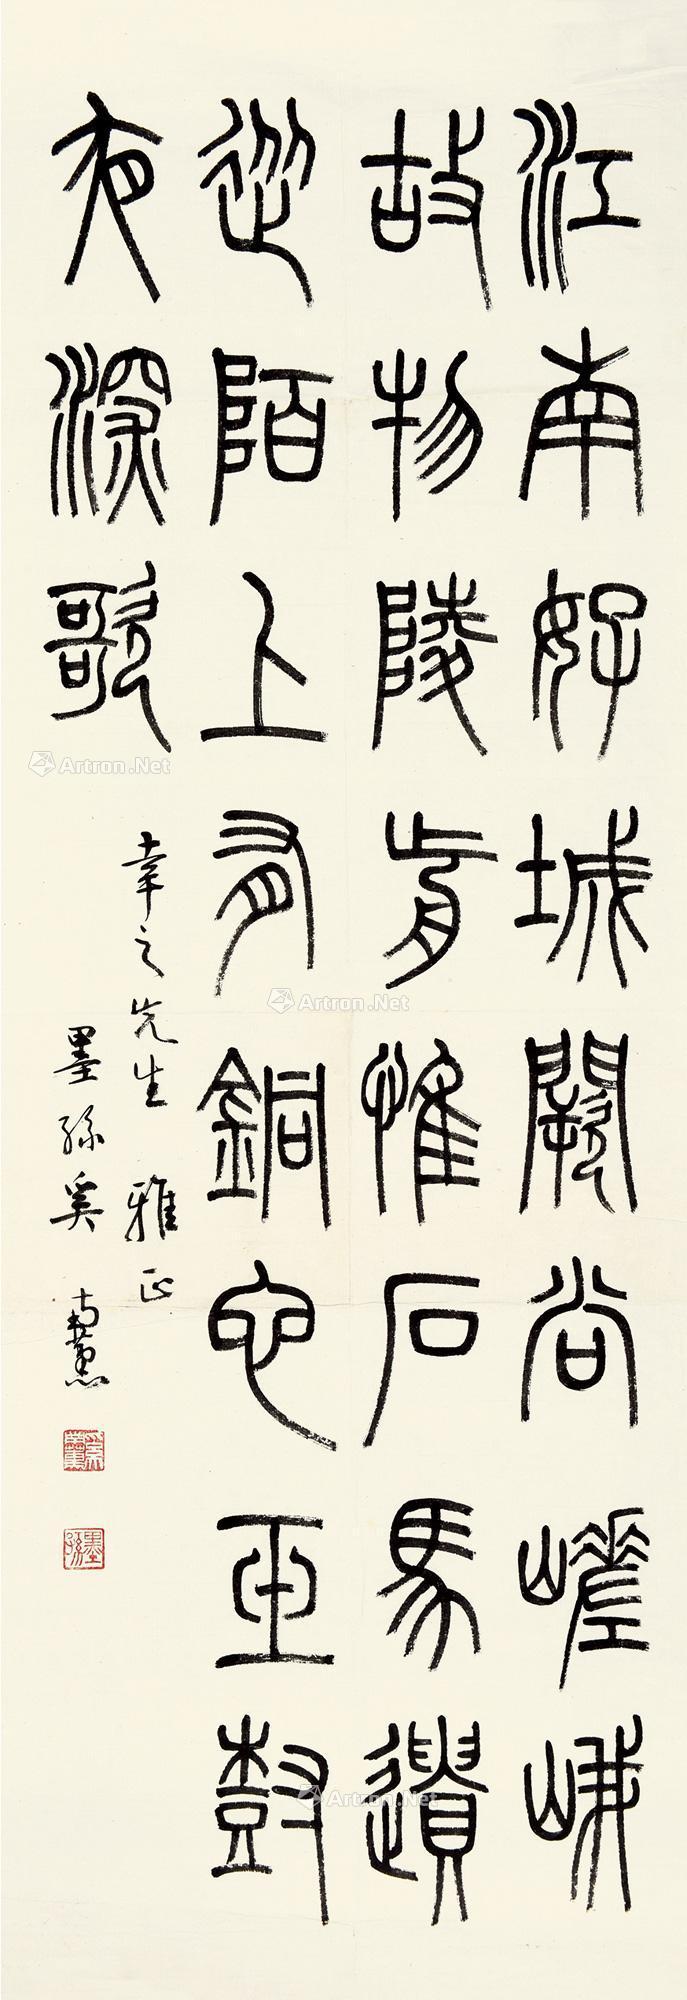 江南好城闕尚嵯峨
故物陵前惟石馬遺
從陌上有銅它玉樹
夜深歌
幸之先生 雅正
墨孫奚南薰
奚南薰
墨孫
Artron.Net
Artron.Net
Artron.Net